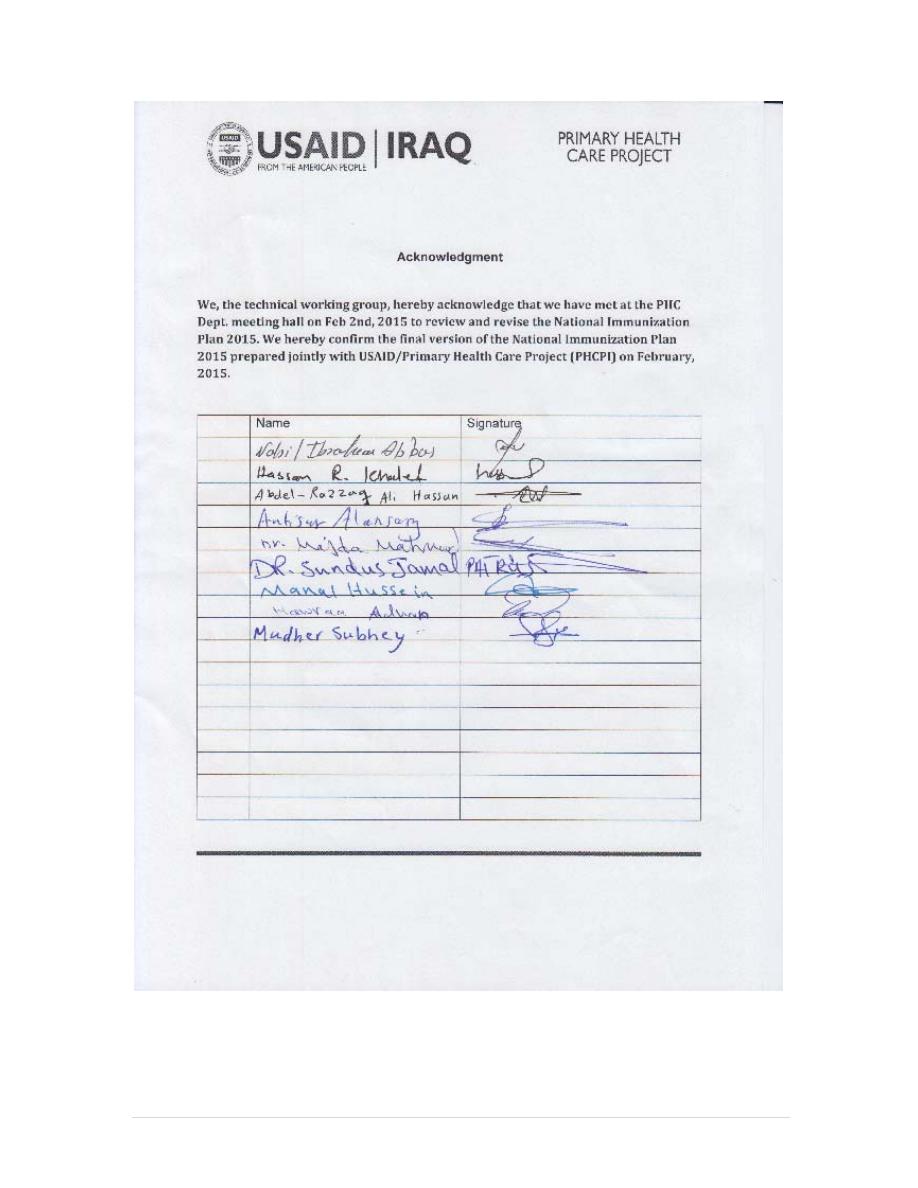 USAID | IRAQ
FROM THE AMERICAN PEOPLE
PRIMARY HEALTH
CARE PROJECT
Acknowledgment
We, the technical working group, hereby acknowledge that we have met at the PHC
Dept. meeting hall on Feb 2nd, 2015 to review and revise the National Immunization
Plan 2015. We hereby confirm the final version of the National Immunization Plan
2015 prepared jointly with USAID/Primary Health Care Project (PHCPI) on February,
2015.
Name Signature
Nabil Ibrahim Abbas
Hassan R. Khalef
Abdel-Razzaq Ali Hassan
Alansary
Dr. Majda
DR. Sundus Jamal PATRUS
Manal Hussein
Hawraa Adnan
Mudher Subhey